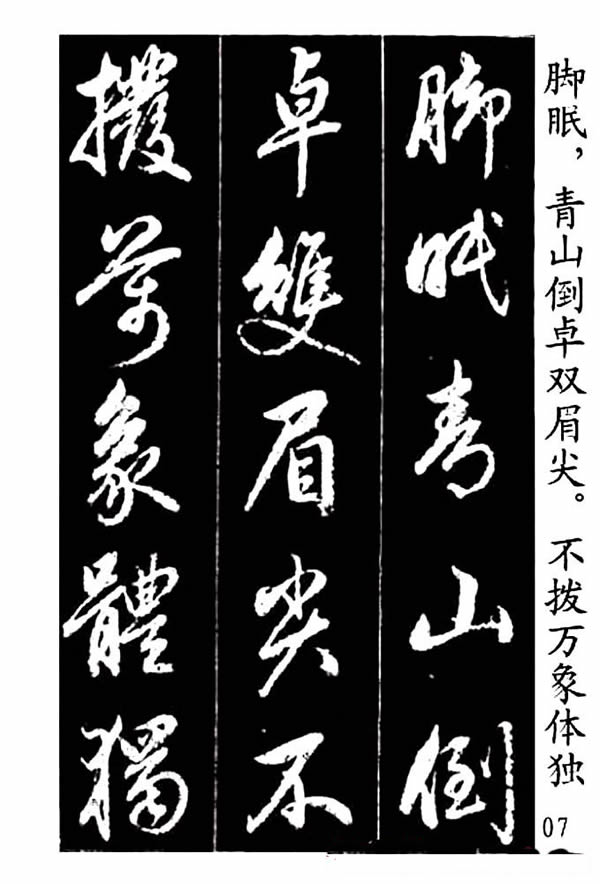 脚眠，青山倒卓双眉尖。不拨万象体独
07
脚眠青山倒
卓雙眉尖不
撥萬象體獨